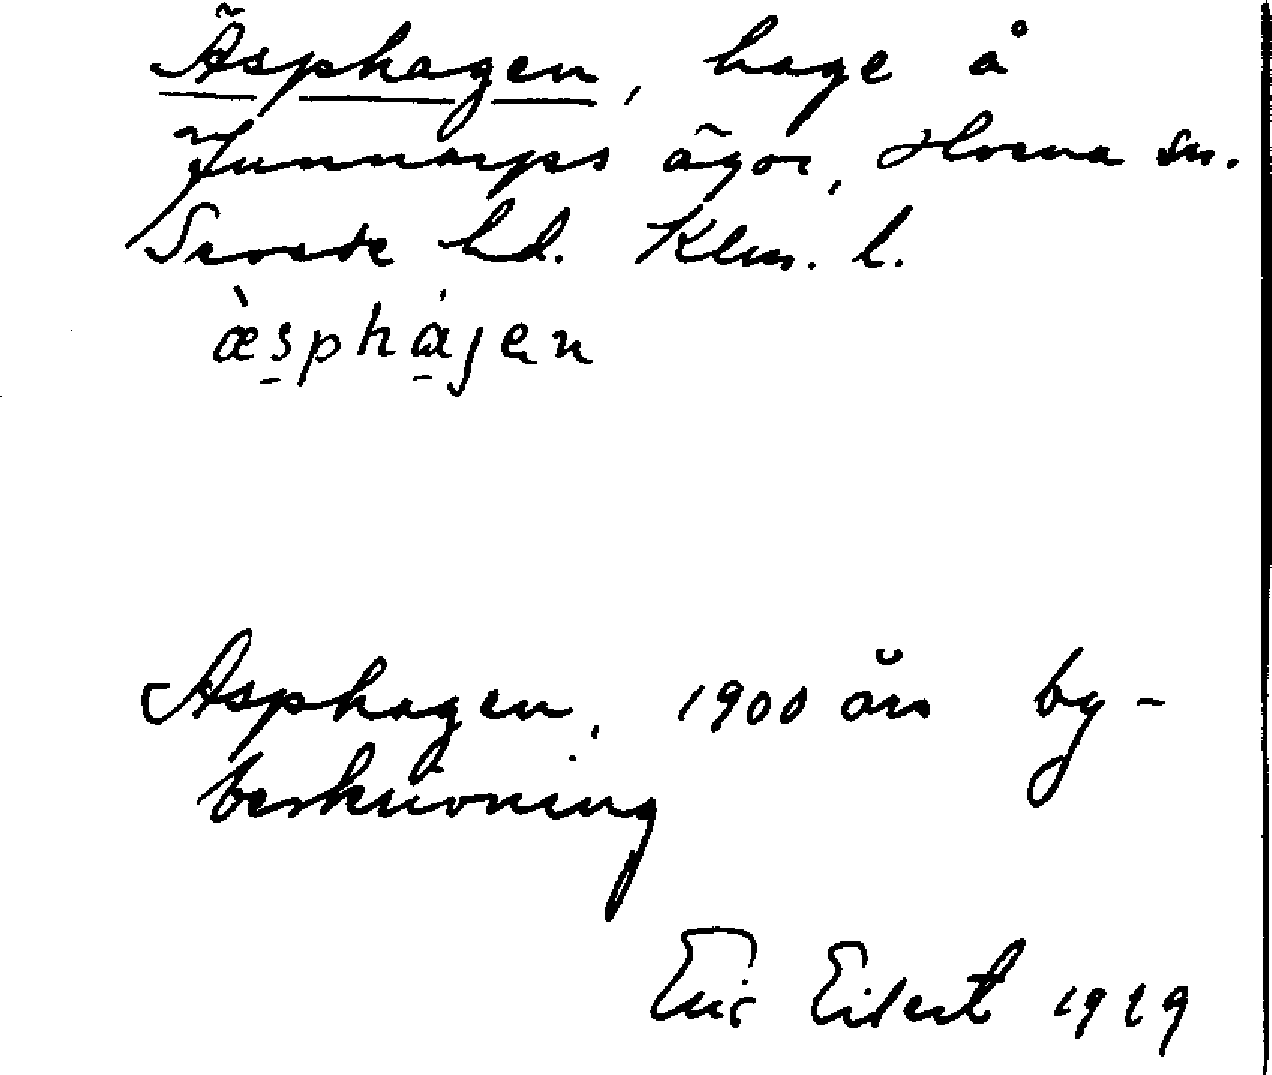 Äsphagen, hage å
Junnarps ägor, Horna sn.
Sevede hd. Klm. l.
æ̀sphájen
Asphagen, 1900 års by-
beskrivning
Eric Eilert 1919